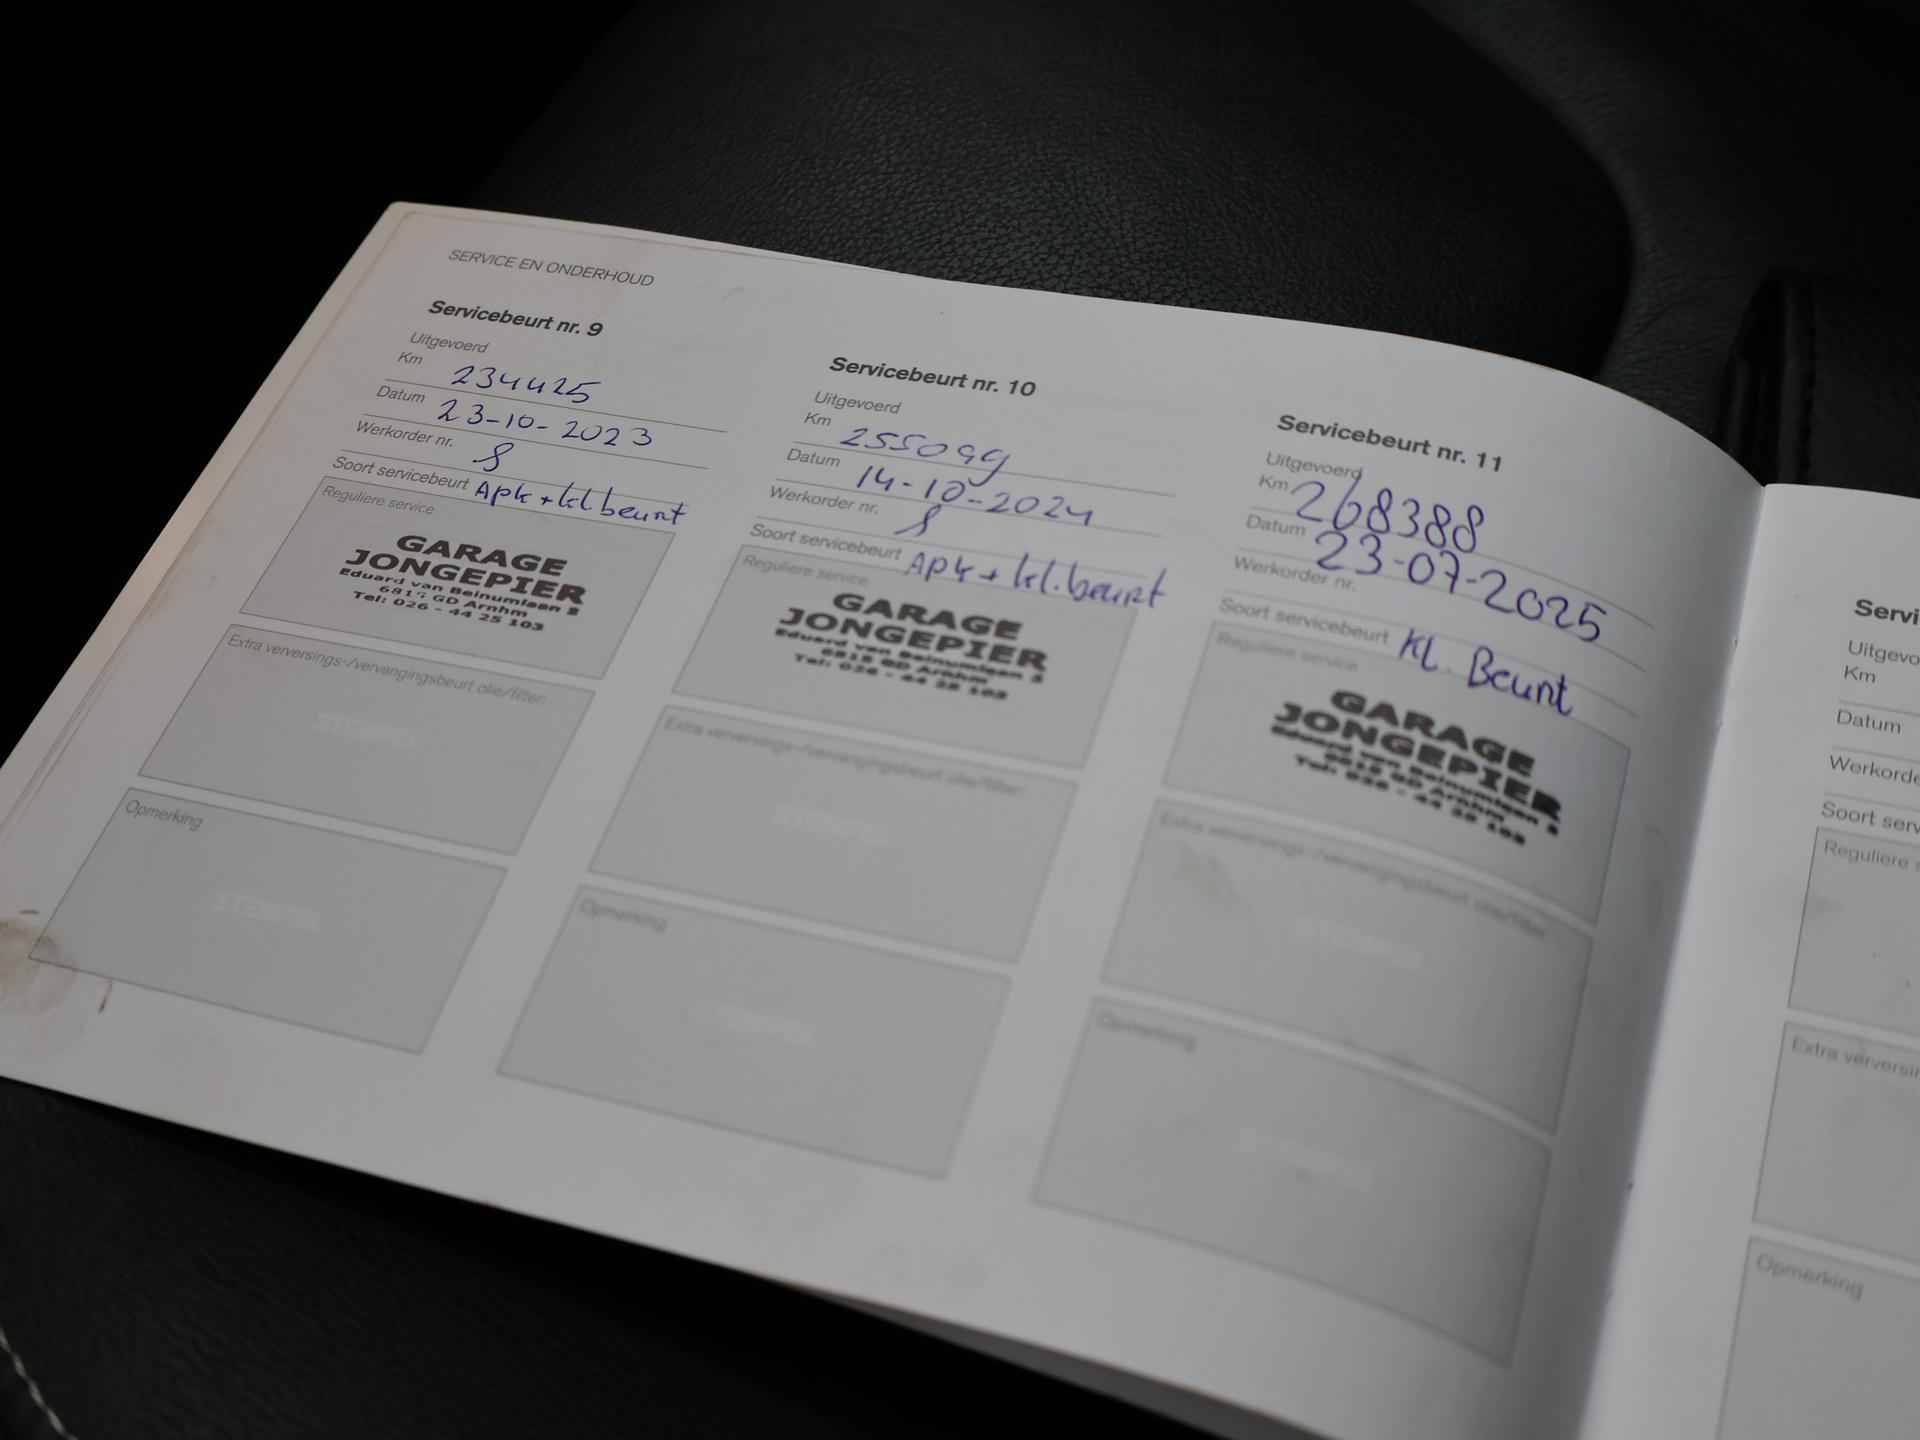 SERVICE EN ONDERHOUD
Servicebeurt nr. 9
Uitgevoerd
Km 234425
Datum 23-10-2023
Werkorder nr.
Soort servicebeurt Apk + kl beurt
Reguliere service
GARAGE
JONGEPIER
Eduard van Beinumlaan 5
6815 GD Arnhm
Tel: 026 - 44 25 103
Extra verversings-/vervangingsbeurt olie/filter
STEMPEL
Opmerking
STEMPEL
Servicebeurt nr. 10
Uitgevoerd
Km 255099
Datum 14-10-2024
Werkorder nr.
Soort servicebeurt Apk + kl. beurt
Reguliere service
GARAGE
JONGEPIER
Eduard van Beinumlaan 5
6815 GD Arnhm
Tel: 026 - 44 25 103
Extra verversings-/vervangingsbeurt olie/filter
Opmerking
Servicebeurt nr. 11
Uitgevoerd
Km 268388
Datum 23-07-2025
Werkorder nr.
Soort servicebeurt KL. Beurt
Reguliere service
GARAGE
JONGEPIER
Eduard van Beinumlaan 5
6815 GD Arnhm
Tel: 026 - 44 25 103
Extra verversings-/vervangingsbeurt olie/filter
Opmerking
Servi
Uitgevo
Km
Datum
Werkorde
Soort serv
Reguliere s
Extra verversin
Opmerking